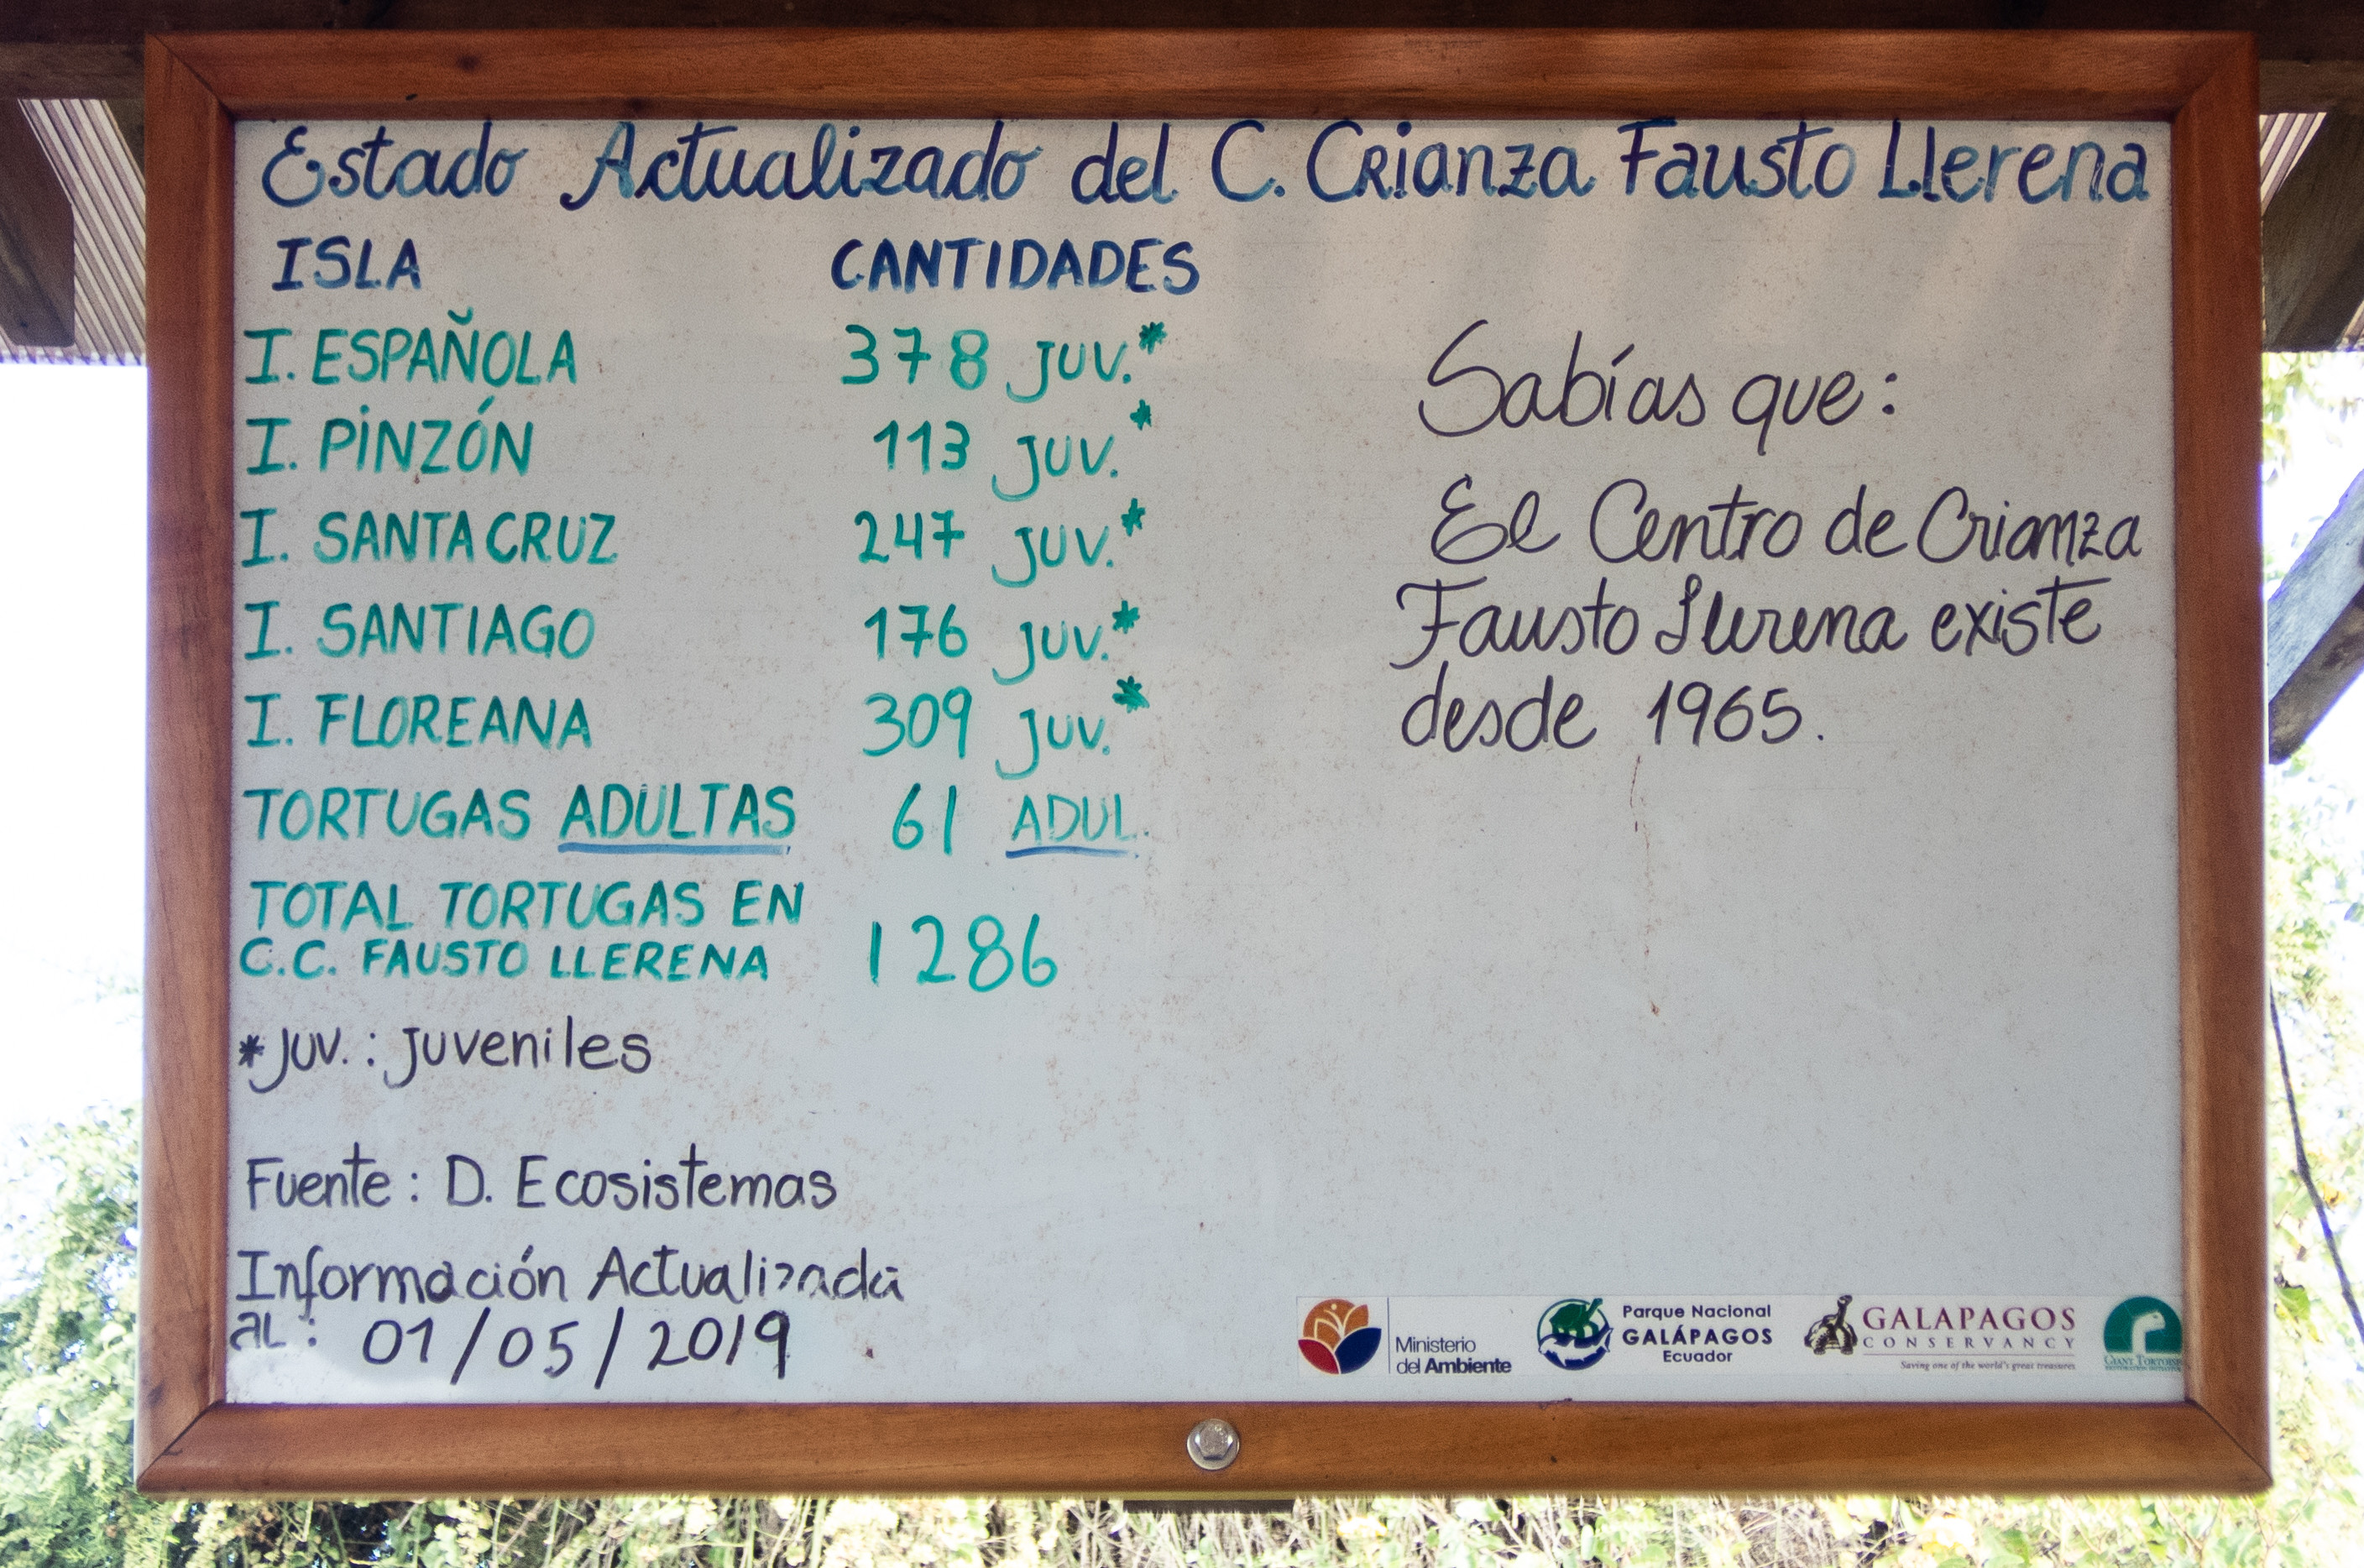 Estado Actualizado del C. Crianza Fausto Llerena
ISLA CANTIDADES
I. ESPAÑOLA 378 JUV.*
I. PINZÓN 113 JUV.*
I. SANTA CRUZ 247 JUV.*
I. SANTIAGO 176 JUV.*
I. FLOREANA 309 JUV.*
TORTUGAS ADULTAS 61 ADUL.
TOTAL TORTUGAS EN
C.C. FAUSTO LLERENA 1286
*JUV.: Juveniles
Fuente: D. Ecosistemas
Información Actualizada
AL: 01/05/2019
Sabías que:
El Centro de Crianza
Fausto Llerena existe
desde 1965.
Ministerio
del Ambiente
Parque Nacional
GALÁPAGOS
Ecuador
GALAPAGOS
CONSERVANCY
Saving one of the world's great treasures
GIANT TORTOISE
RESTORATION INITIATIVE